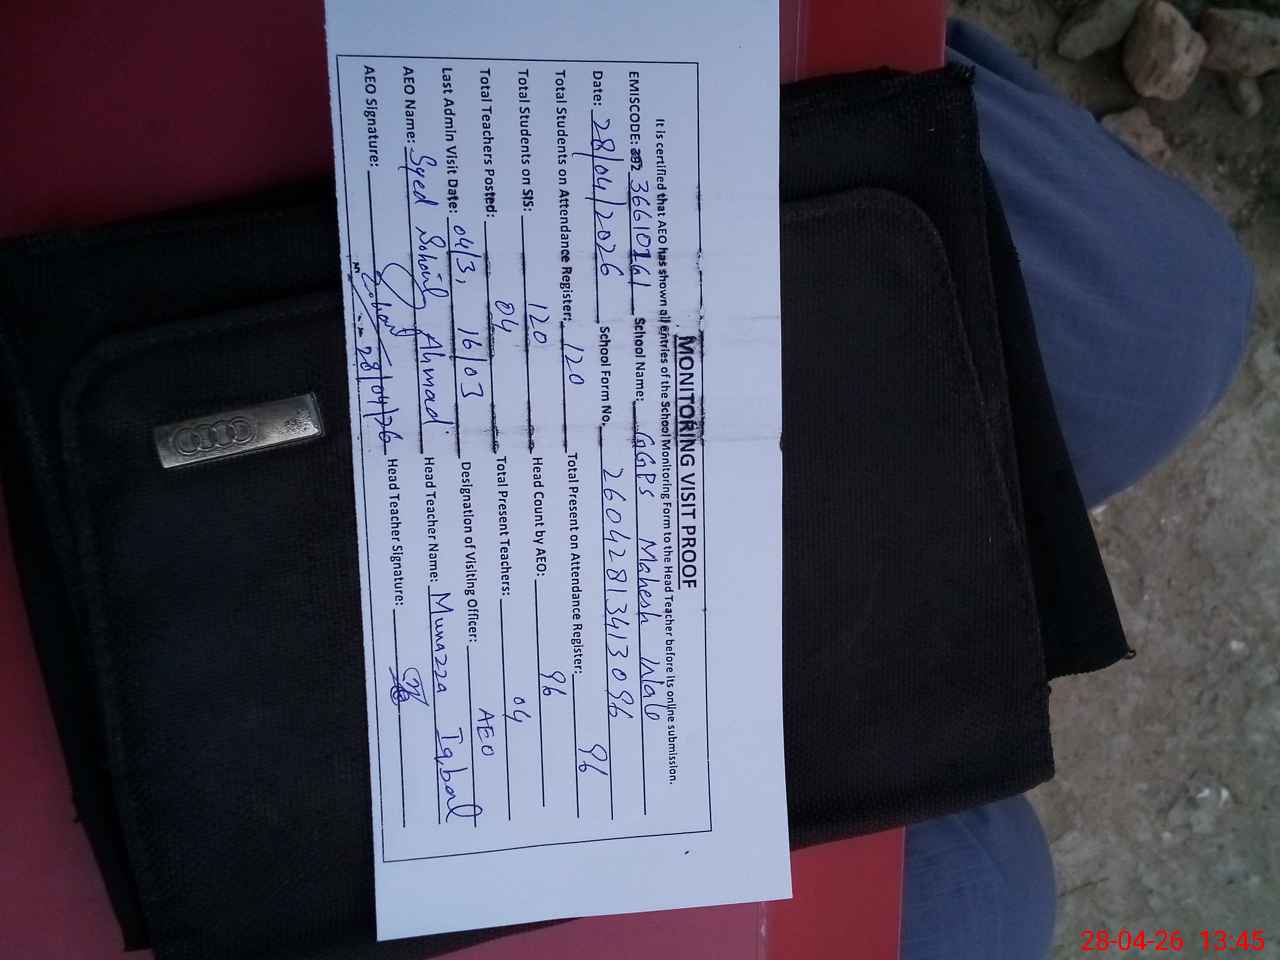 MONITORING VISIT PROOF
It is certified that AEO has shown all entries of the School Monitoring Form to the Head Teacher before its online submission.
EMISCODE: 36610161 School Name: GGPS Mahesh
Date: 28/04/2026 School Form No. 260428134130 96
Total Students on Attendance Register: 120 Total Present on Attendance Register: 96
Total Students on SIS: 120 Head Count by AEO: 96
Total Teachers Posted: 04 Total Present Teachers: 04
Last Admin Visit Date: 04/3, 16/03 Designation of Visiting Officer: AEO
AEO Name: Syed Sohail Ahmad Head Teacher Name: Munazza Iqbal
AEO Signature: 28/04/26 Head Teacher Signature:
28-04-26 13:45